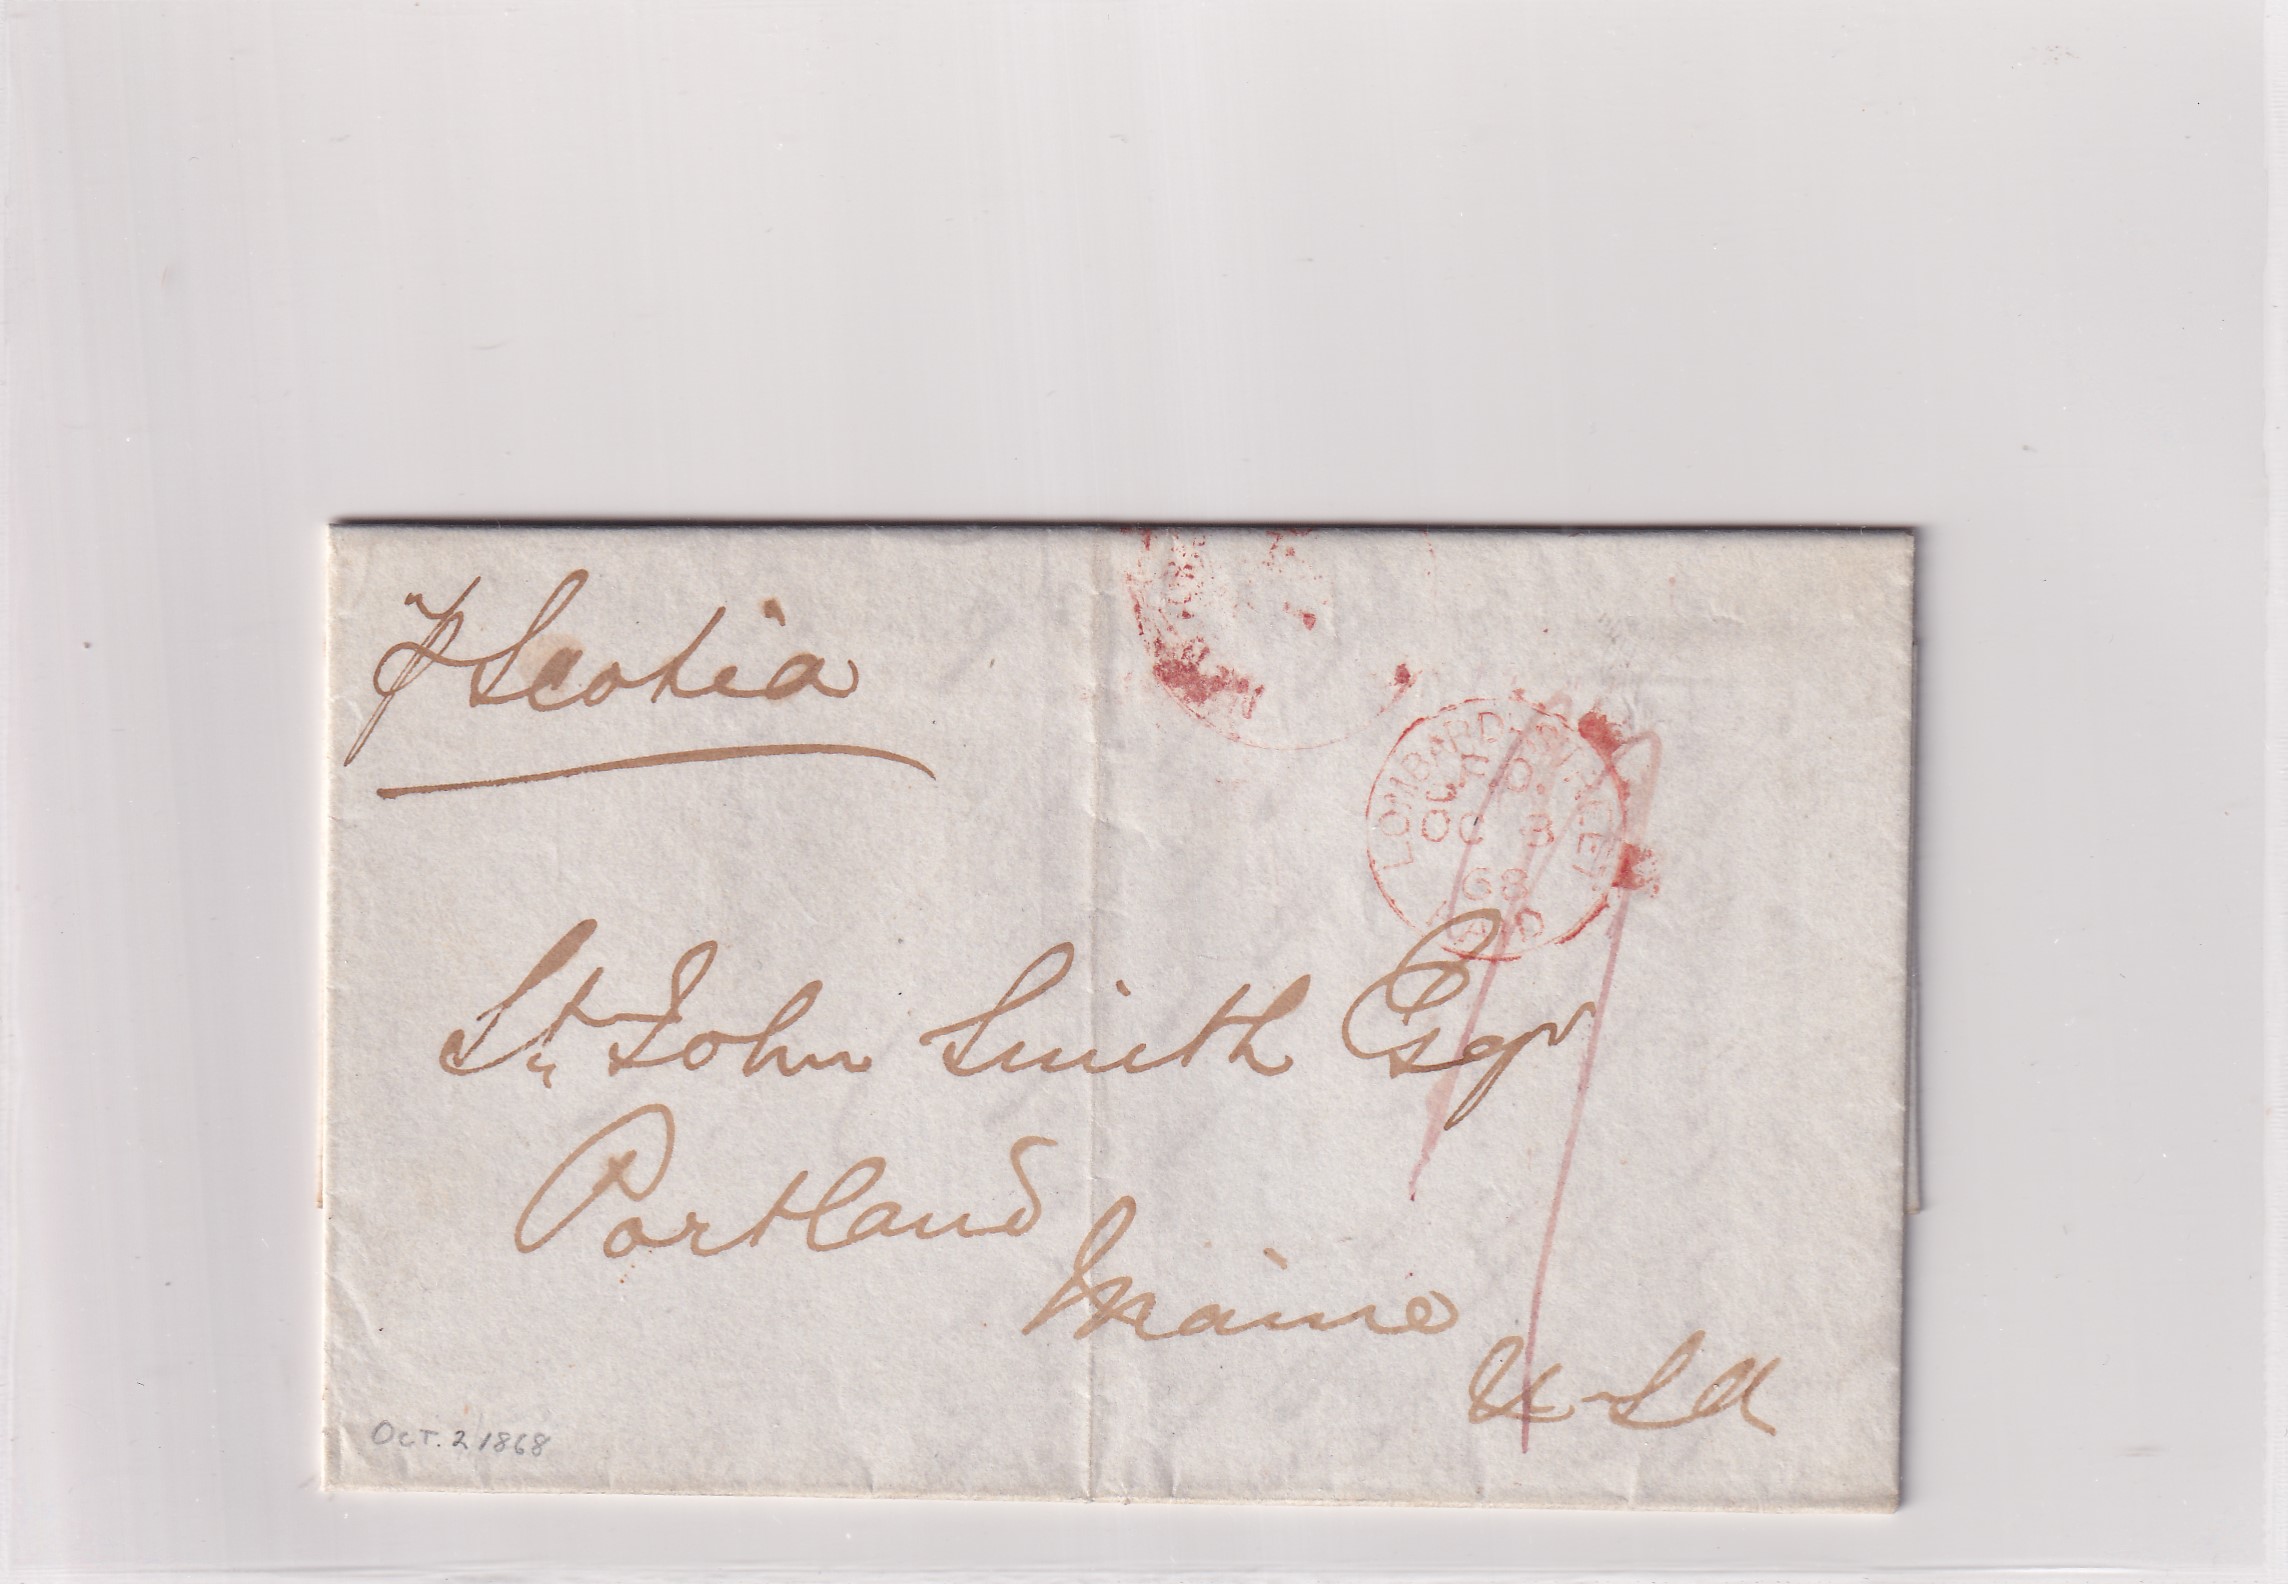 p Scotia
LOMBARD STREET
OC 3
68
PAID
St. John Smith Esqr
Portland
Maine
U S A
OCT. 2 1868